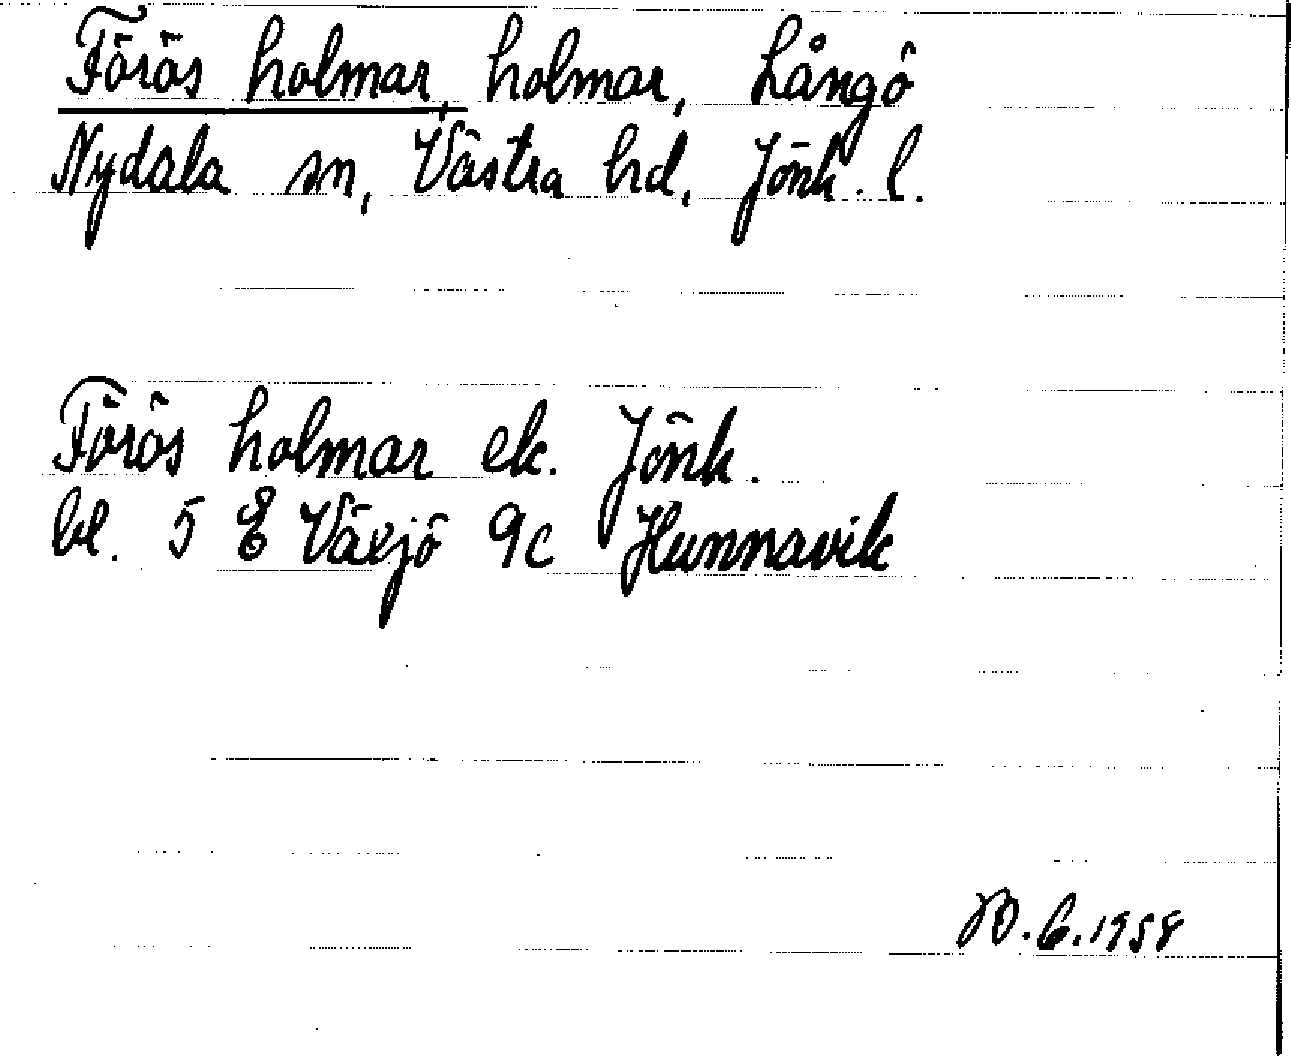 Förös holmar, holmar, Långö
Nydala sn, Västra hd, Jönk. l.
Förös holmar ek. Jönk.
bl. 5 E Växjö 9c Hunnavik
B. 6. 1958